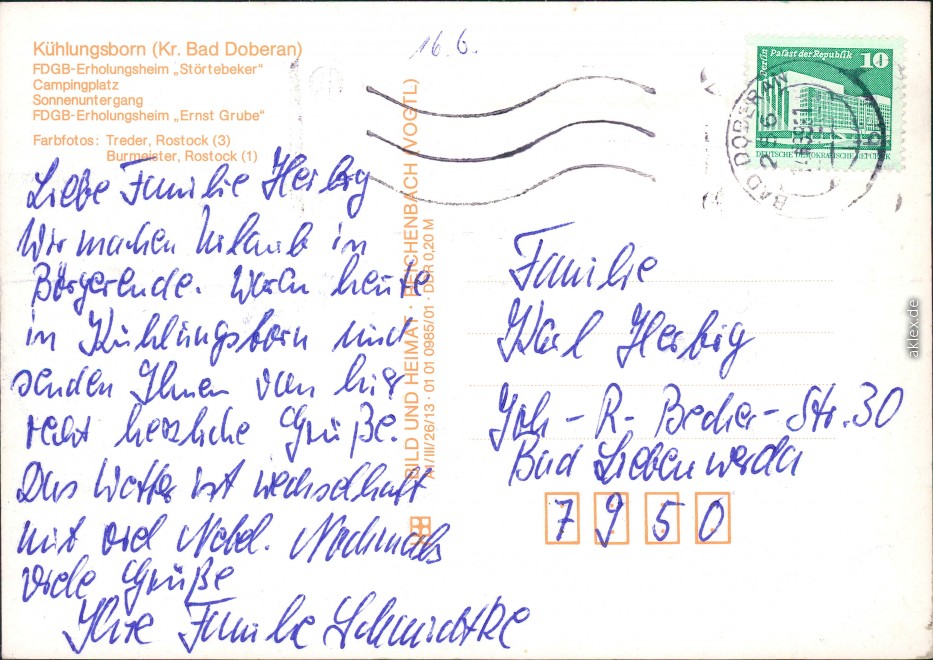 Kühlungsborn (Kr. Bad Doberan)
FDGB-Erholungsheim „Störtebeker"
Campingplatz
Sonnenuntergang
FDGB-Erholungsheim „Ernst Grube"
Farbfotos: Treder, Rostock (3)
Burmeister, Rostock (1)
16.6.
Liebe Familie Herbig
Wir machen Urlaub in
Börgerende. Waren heute
in Kühlungsborn und
senden Ihnen von hier
recht herzliche Grüße.
Das Wetter ist wechselhaft
mit viel Nebel. Nochmals
viele Grüße
Ihre Familie Schmidtke
BILD UND HEIMAT · REICHENBACH (VOGTL)
A1/III/26/13 · 01 01 0985/01 · DDR 0,20 M
Berlin Palast der Republik
10
DEUTSCHE DEMOKRATISCHE REPUBLIK
BAD DOBERAN
Familie
Karl Herbig
Joh-R-Becher-Str.30
Bad Liebenwerda
7950
aklex.de